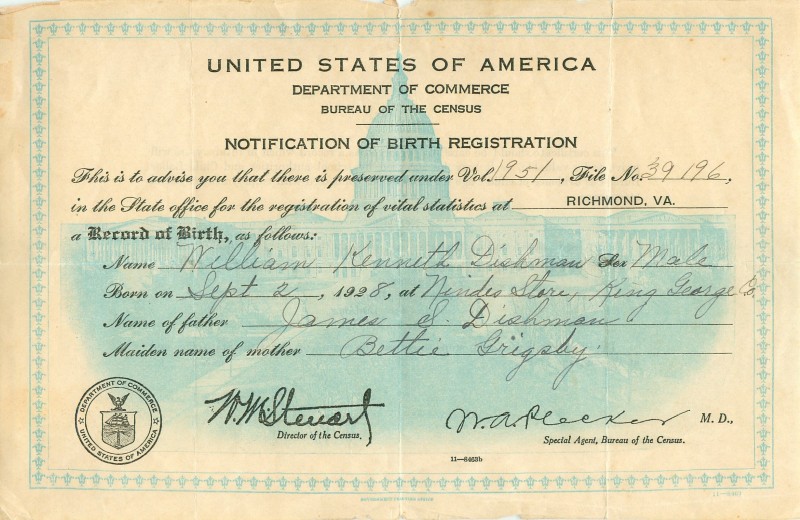 UNITED STATES OF AMERICA
DEPARTMENT OF COMMERCE
BUREAU OF THE CENSUS
NOTIFICATION OF BIRTH REGISTRATION
This is to advise you that there is preserved under Vol. 1951, File No. 39196,
in the State office for the registration of vital statistics at RICHMOND, VA.
a Record of Birth, as follows:
Name William Kenneth Dishman Sex Male
Born on Sept 2, 1928, at Nindes Store, King George Co.
Name of father James S. Dishman
Maiden name of mother Bettie Grigsby
DEPARTMENT OF COMMERCE
UNITED STATES OF AMERICA
W. M. Steuart
Director of the Census.
W. A. Plecker M. D.,
Special Agent, Bureau of the Census.
11—8463b